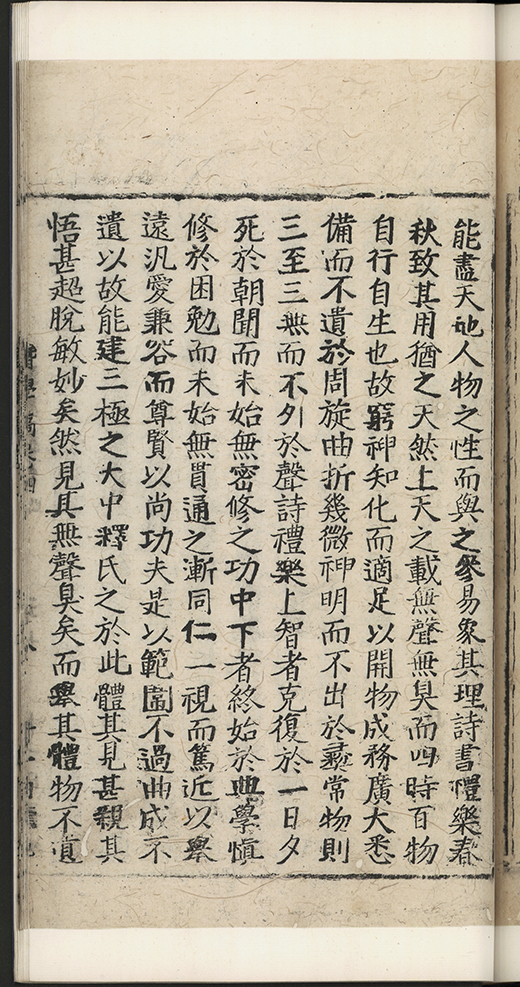 能盡天地人物之性而與之參易象其理詩書禮樂春
秋致其用猶之天然上天之載無聲無臭而四時百物
自行自生也故窮神知化而適足以開物成務廣大悉
備而不遺於周旋曲折幾微神明而不出於彝常物則
三至三無而不外於聲詩禮樂上智者克復於一日夕
死於朝聞而未始無密修之功中下者終始於典學慎
修於困勉而未始無貫通之漸同仁一視而篤近以舉
遠汎愛兼容而尊賢以尚功夫是以範圍不過曲成不
遺以故能建三極之大中釋氏之於此體其見甚親其
悟甚超脫敏妙矣然見其無聲臭矣而舉其體物不遺